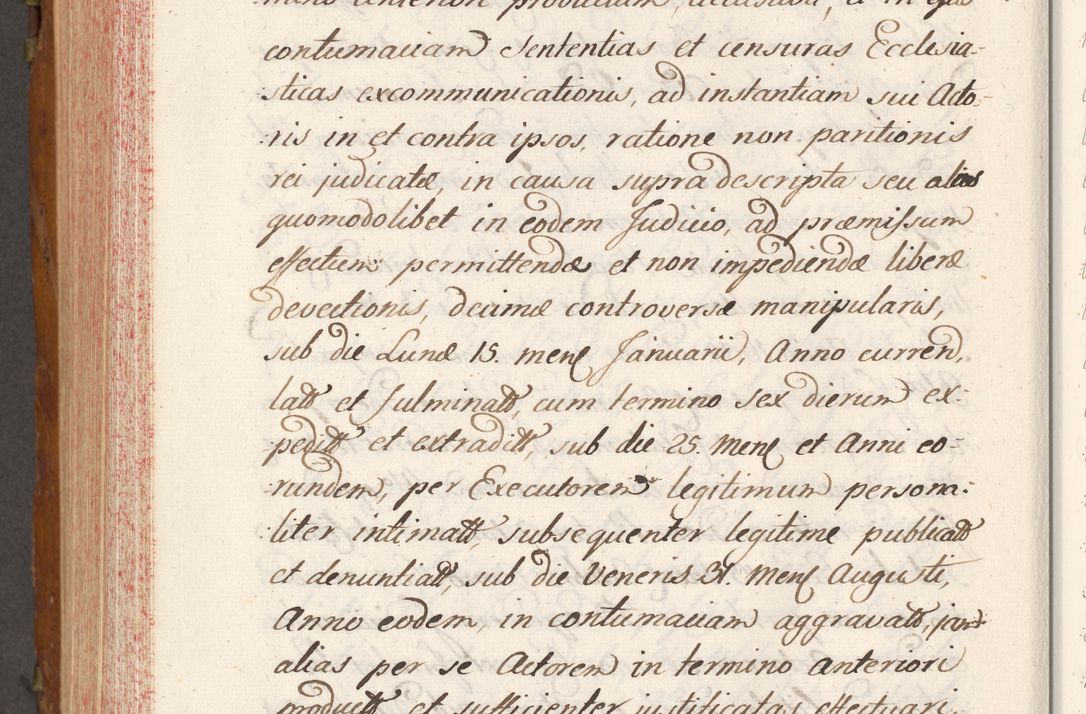 mino anteriori productum, accusata, et in ejus
contumaciam Sententias et censuras Ecclesia-
sticas excommunicationis, ad instantiam sui Acto-
ris in et contra ipsos, ratione non paritionis
rei judicatæ, in causa supra descripta seu alias
quomodolibet in eodem Judicio, ad præmissum
effectum permittendæ et non impediendæ liberæ
devectionis, decimæ controversæ manipularis,
sub die Lunæ 15. mens Januarii, Anno curren,
latt et fulminatt, cum termino sex dierum ex-
peditt et extraditt, sub die 25. Mens et Anni eo-
rundem, per Executorem legitimum persona-
liter intimatt, subsequenter legitime publicatt
et denuntiatt, sub die Veneris 31. Mens Augusti,
Anno eodem, in contumaciam aggravatt, jam
alias per se Actorem in termino anteriori
productt et sufficienter justificatas effectuari,